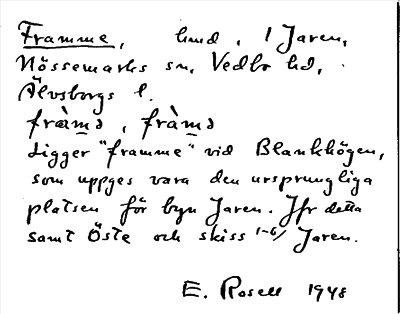 Framme, hmd, 1 Jaren,
Nössemarks sn, Vedbo hd,
Älvsborgs l.
fràmə, fràmə
Ligger "framme" vid Blankhögen,
som uppges vara den ursprungliga
platsen för byn Jaren. Jfr detta
samt Öste och skiss 1-6/ Jaren.
E. Rosell 1948